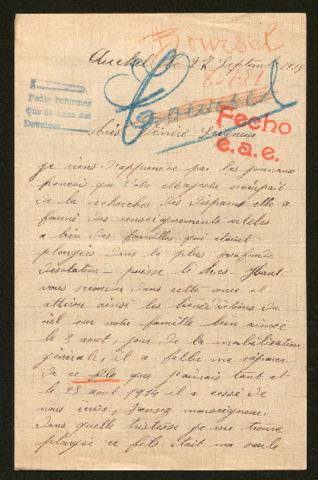 Boursel
Auchel le 27 Septembre 1915
Pedir informes
Que se haga sus
Devolver
Fecho
e.a.e.
très vénéré Seigneur
je viens d'apprendre par les journaux
francais que Votre Majesté s'occupait
de la recherche des disparus elle a
fourni des renseignements utiles
a bien des familles qui étaient
plongées dans la plus profonde
désolation puisse le très-Haut
vous seconder dans cette voie et
attirer ainsi les bénédictions du
ciel sur votre famille bien aimée
le 3 août, jour de la mobilisation
générale, il a fallu me séparer
de ce fils que j'aimais tant et
le 28 août 1914 il a cessé de
nous écrire, Pensez monseigneur,
dans quelle tristesse je me trouve
plongée ce fils était ma seule